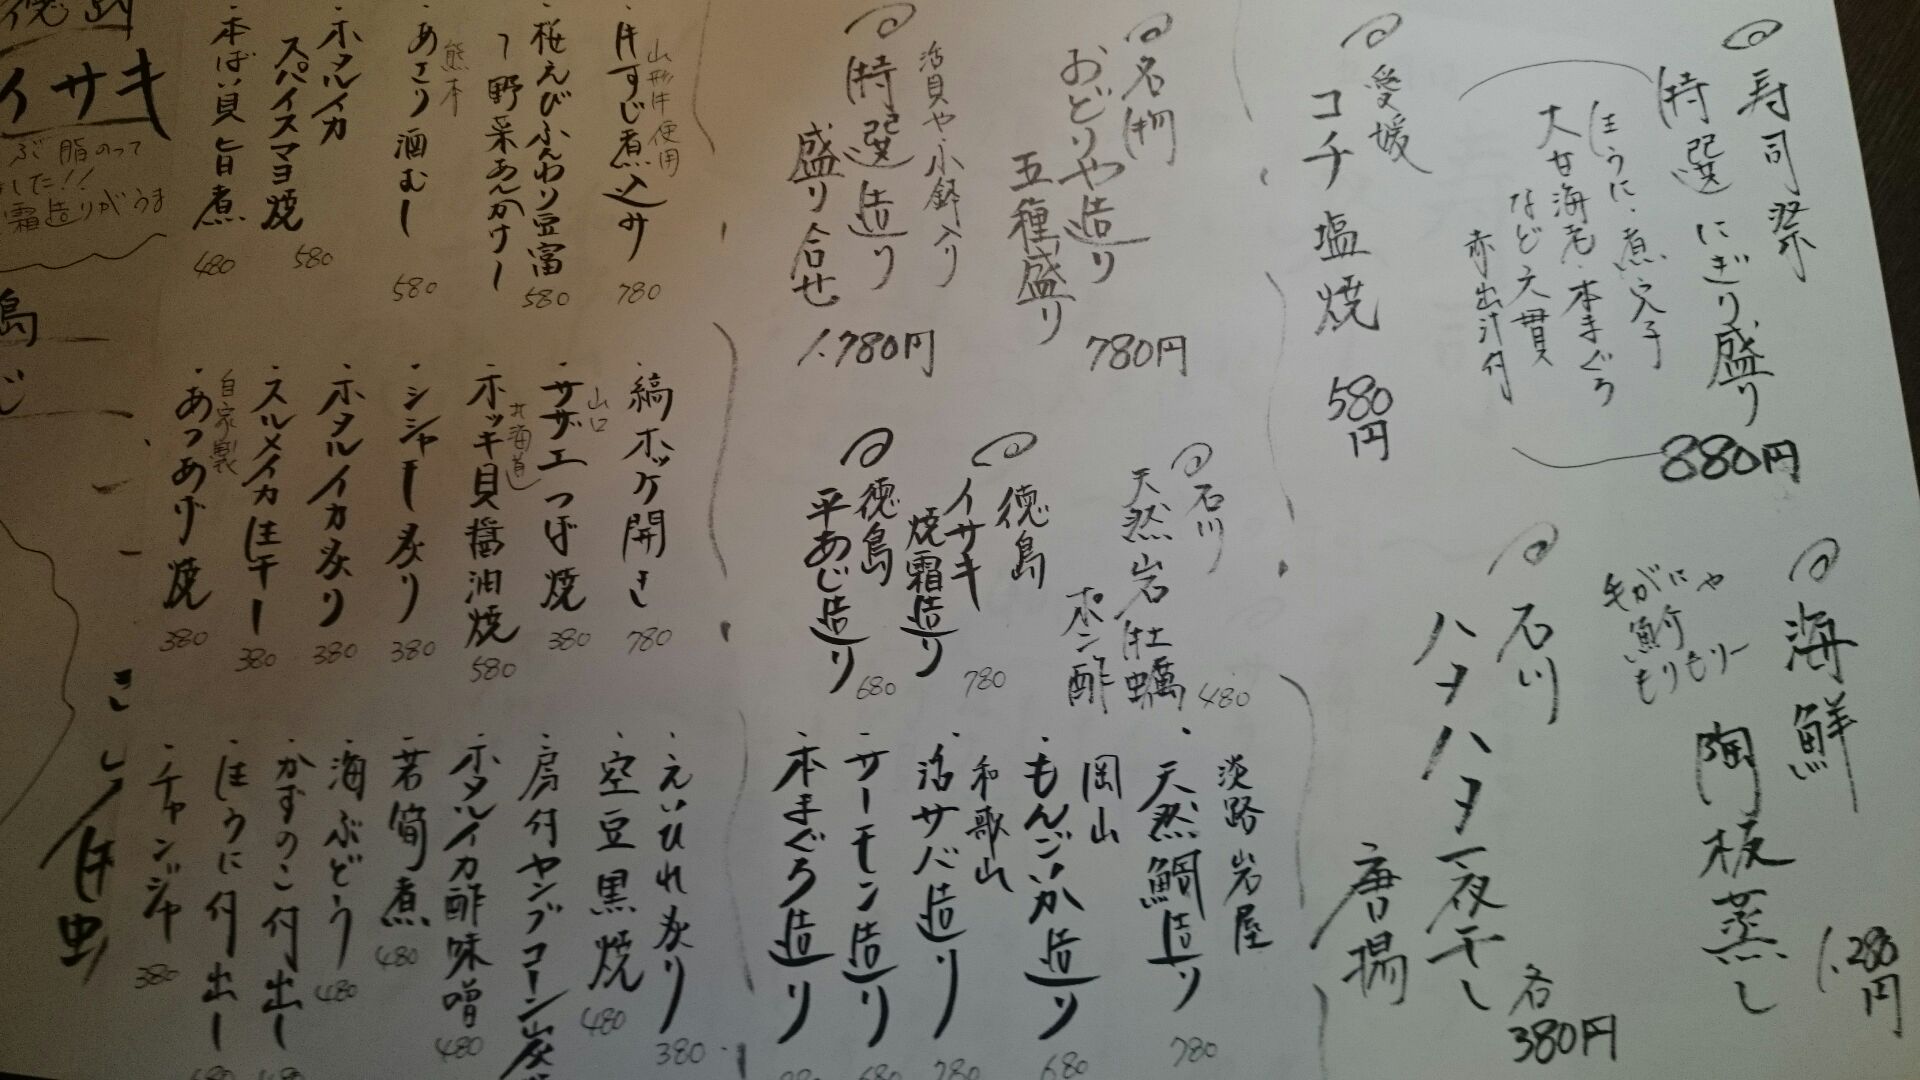 寿司祭
特選にぎり盛り
生うに・煮穴子
大甘海老・本まぐろ
など六貫
赤出汁付
880円
海鮮
陶板蒸し
毛がにや
もりもりー
1.280円
愛媛
コチ塩焼
580円
石川
ハタハタ一夜干し
唐揚
各380円
名物
おどりや造り
五種盛り
780円
特選造り
盛り合せ
活貝や小鉢入り
1.780円
石川
天然岩牡蠣
ポン酢
480
徳島
イサキ
焼霜造り
780
徳島
平あじ造り
680
淡路岩屋
天然鯛造り
780
岡山
もんごいか造り
680
和歌山
活サバ造り
780
サーモン造り
680
本まぐろ造り
山形牛使用
牛すじ煮込み
780
桜えびふんわり豆富
〜野菜あんかけ〜
580
熊本
あさり酒むし
580
ホタルイカ
スパイスマヨ焼
580
本ばい貝旨煮
480
縞ホッケ開き
780
山口
サザエつぼ焼
380
北海道
ホッキ貝醤油焼
580
シシャモ炙り
380
ホタルイカ炙り
380
スルメイカ生干し
380
自家製
あつあげ焼
380
えいひれ炙り
380
空豆黒焼
480
房付ヤングコーン炭
ホタルイカ酢味噌
480
若筍煮
480
海ぶどう
480
かずのこ付出し
480
生うに付出し
チャンジャ
380
イサキ
脂のって
した!!
霜造りがうま
島
じ